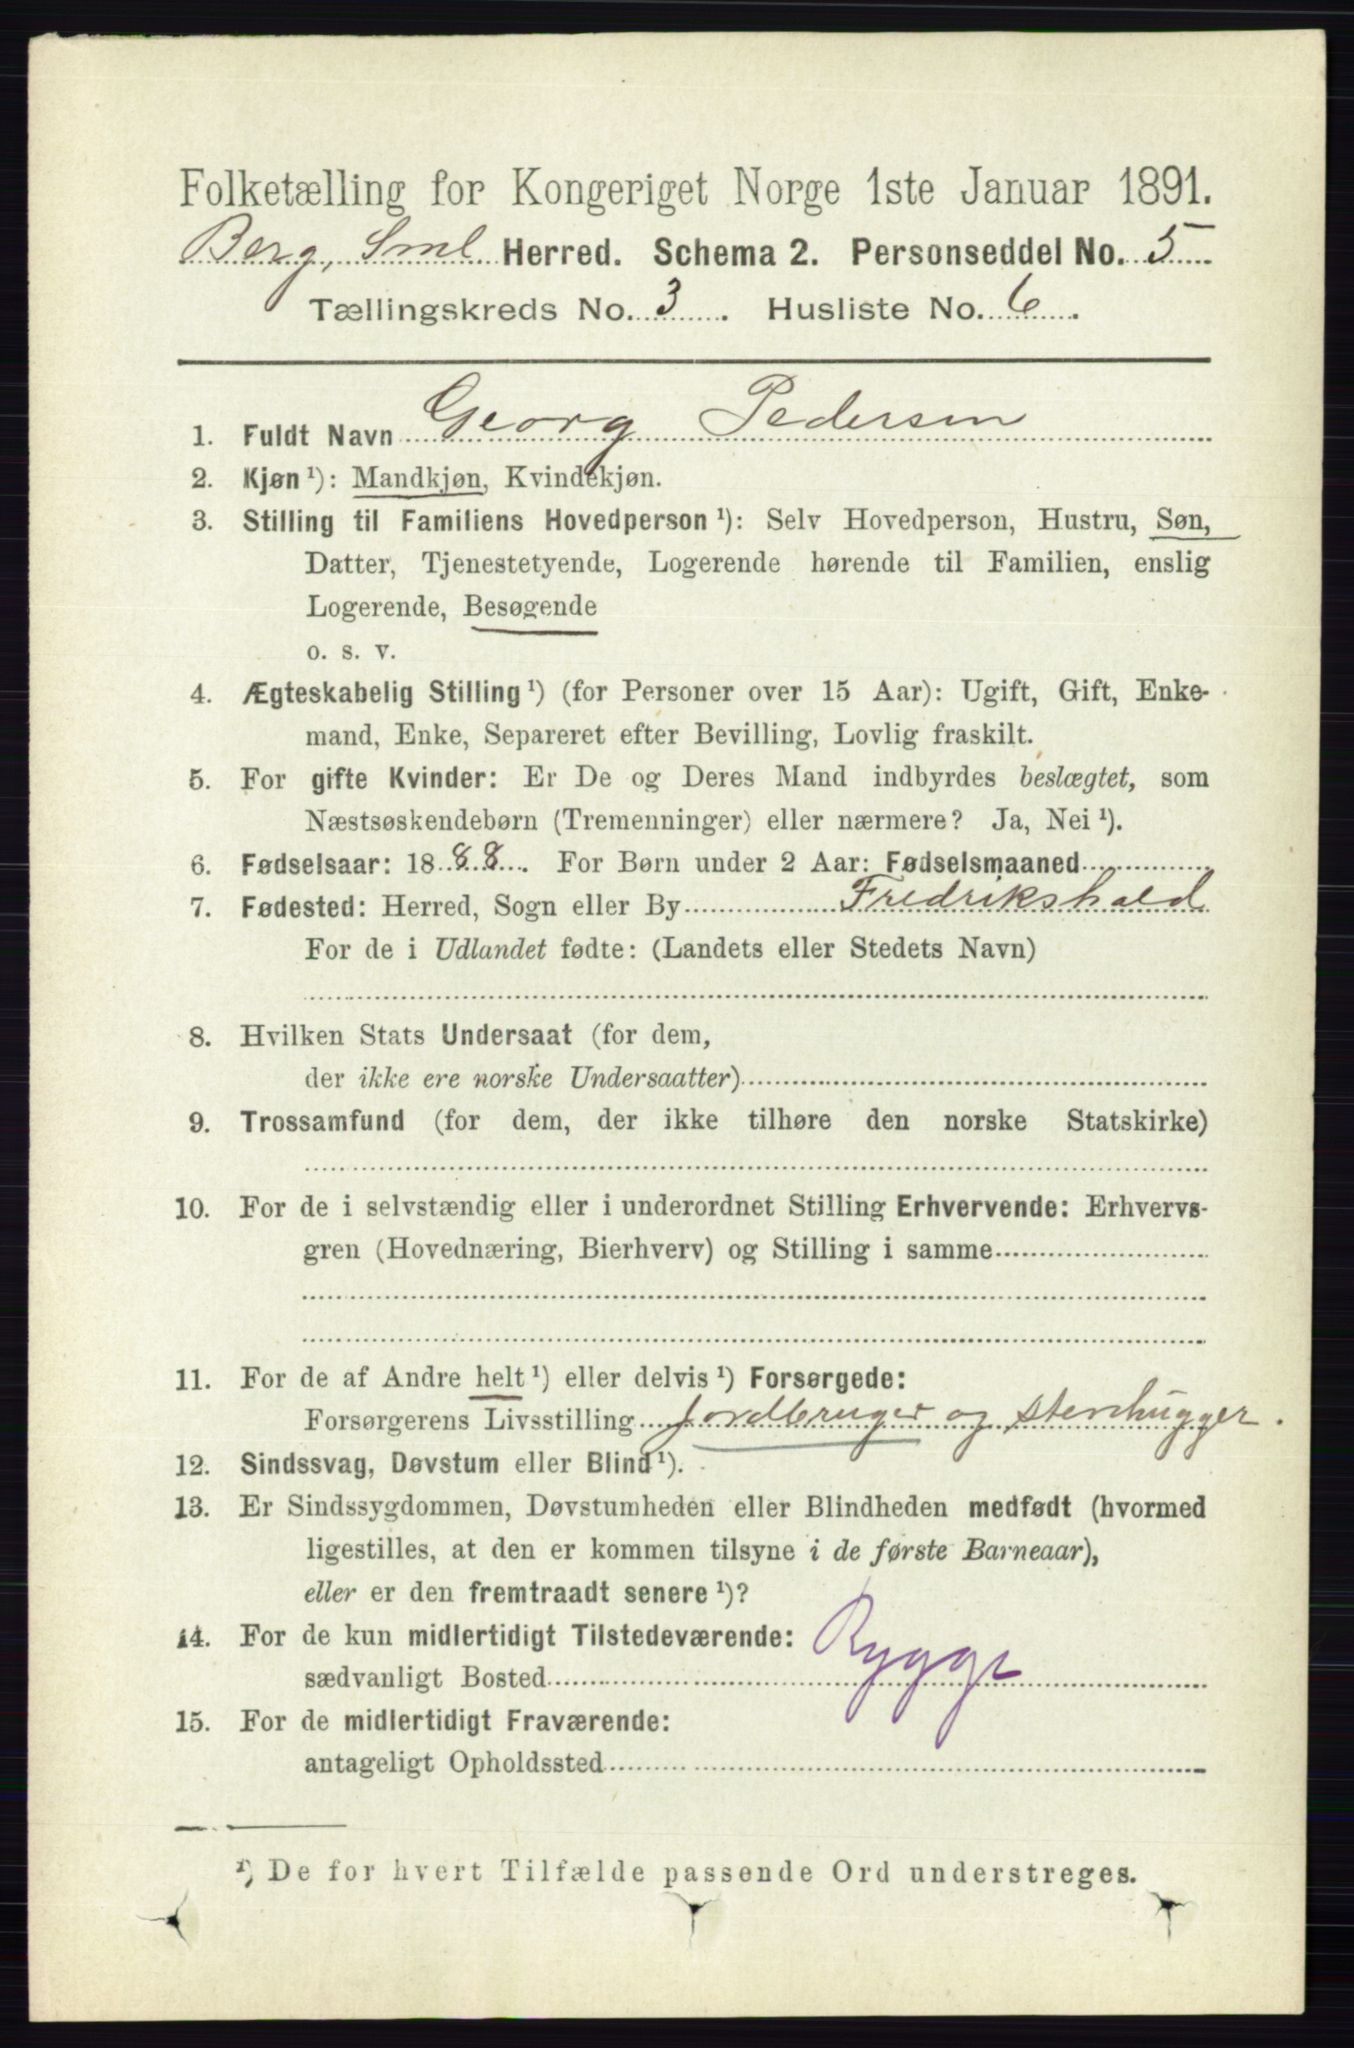 Folketælling for Kongeriget Norge 1ste Januar 1891.
Berg, Sml Herred. Schema 2. Personseddel No. 5
Tællingskreds No. 3. Husliste No. 6.
1. Fuldt Navn Georg Pedersen
2. Kjøn ¹): Mandkjøn, Kvindekjøn.
3. Stilling til Familiens Hovedperson ¹): Selv Hovedperson, Hustru, Søn,
Datter, Tjenestetyende, Logerende hørende til Familien, enslig
Logerende, Besøgende
o. s. v.
4. Ægteskabelig Stilling ¹) (for Personer over 15 Aar): Ugift, Gift, Enke-
mand, Enke, Separeret efter Bevilling, Lovlig fraskilt.
5. For gifte Kvinder: Er De og Deres Mand indbyrdes beslægtet, som
Næstsøskendebørn (Tremenninger) eller nærmere? Ja, Nei ¹).
6. Fødselsaar: 1888. For Børn under 2 Aar: Fødselsmaaned
7. Fødested: Herred, Sogn eller By Fredrikshald
For de i Udlandet fødte: (Landets eller Stedets Navn)
8. Hvilken Stats Undersaat (for dem,
der ikke ere norske Undersaatter)
9. Trossamfund (for dem, der ikke tilhøre den norske Statskirke)
10. For de i selvstændig eller i underordnet Stilling Erhvervende: Erhvervs-
gren (Hovednæring, Bierhverv) og Stilling i samme
11. For de af Andre helt ¹) eller delvis ¹) Forsørgede:
Forsørgerens Livsstilling Jordbruger og stenhugger.
12. Sindssvag, Døvstum eller Blind ¹).
13. Er Sindssygdommen, Døvstumheden eller Blindheden medfødt (hvormed
ligestilles, at den er kommen tilsyne i de første Barneaar),
eller er den fremtraadt senere ¹)?
14. For de kun midlertidigt Tilstedeværende:
sædvanligt Bosted Rygge
15. For de midlertidigt Fraværende:
antageligt Opholdssted
¹) De for hvert Tilfælde passende Ord understreges.